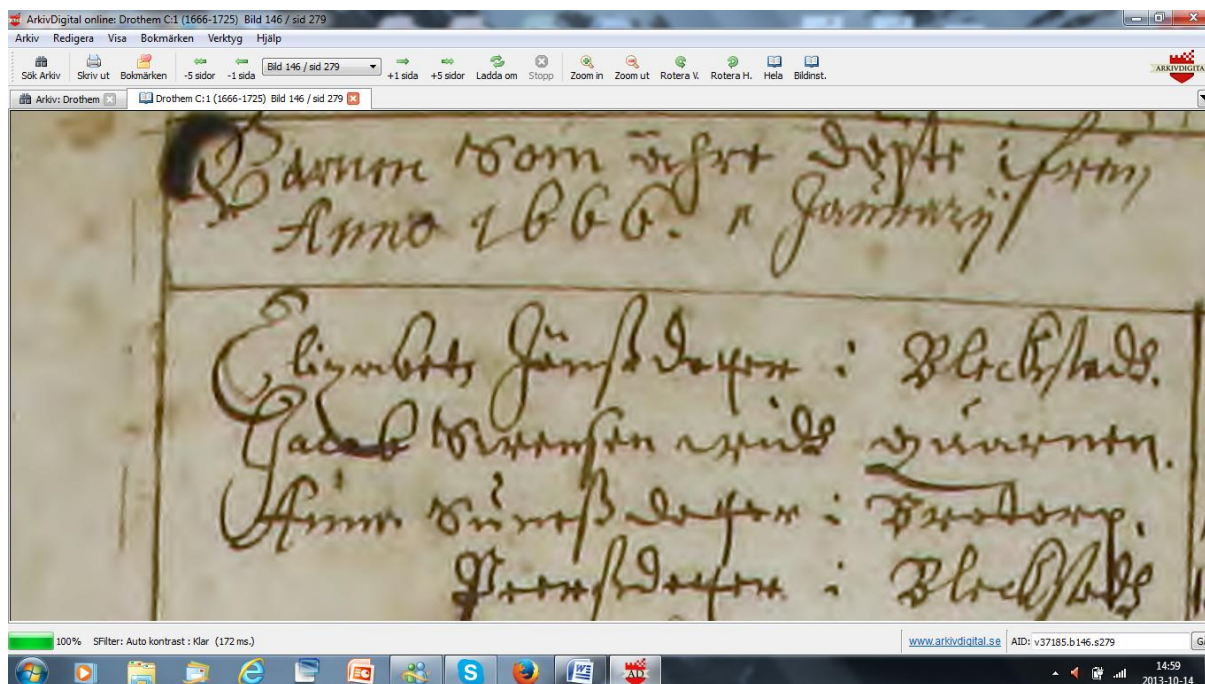 ArkivDigital online: Drothem C:1 (1666-1725) Bild 146 / sid 279
Arkiv Redigera Visa Bokmärken Verktyg Hjälp
Sök Arkiv Skriv ut Bokmärken -5 sidor -1 sida Bild 146 / sid 279 +1 sida +5 sidor Ladda om Stopp Zoom in Zoom ut Rotera V. Rotera H. Hela Bildinst. ARKIVDIGITA
Arkiv: Drothem Drothem C:1 (1666-1725) Bild 146 / sid 279
Barnen Som ähre döpte
Anno 1666. Januarij
Elizabet Jönßdoter i Bleckstadh.
Jacob Swensen widh quarnen.
Anna Suneßdoter i Bretorp.
Peerßdoter i Bleckstadh
100% SFilter: Auto kontrast : Klar (172 ms.) www.arkivdigital.se AID: v37185.b146.s279 G
14:59
2013-10-14